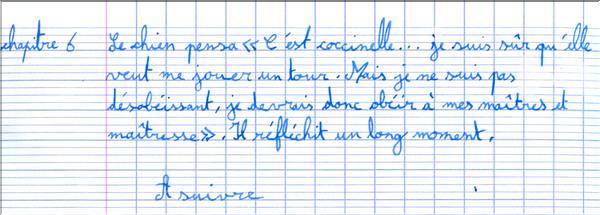 chapitre 6 Le chien pensa « C'est coccinelle... je suis sûr qu'elle
veut me jouer un tour. Mais je ne suis pas
désobéissant, je devrais donc obéir à mes maîtres et
maîtresse ». Il réfléchit un long moment.
A suivre